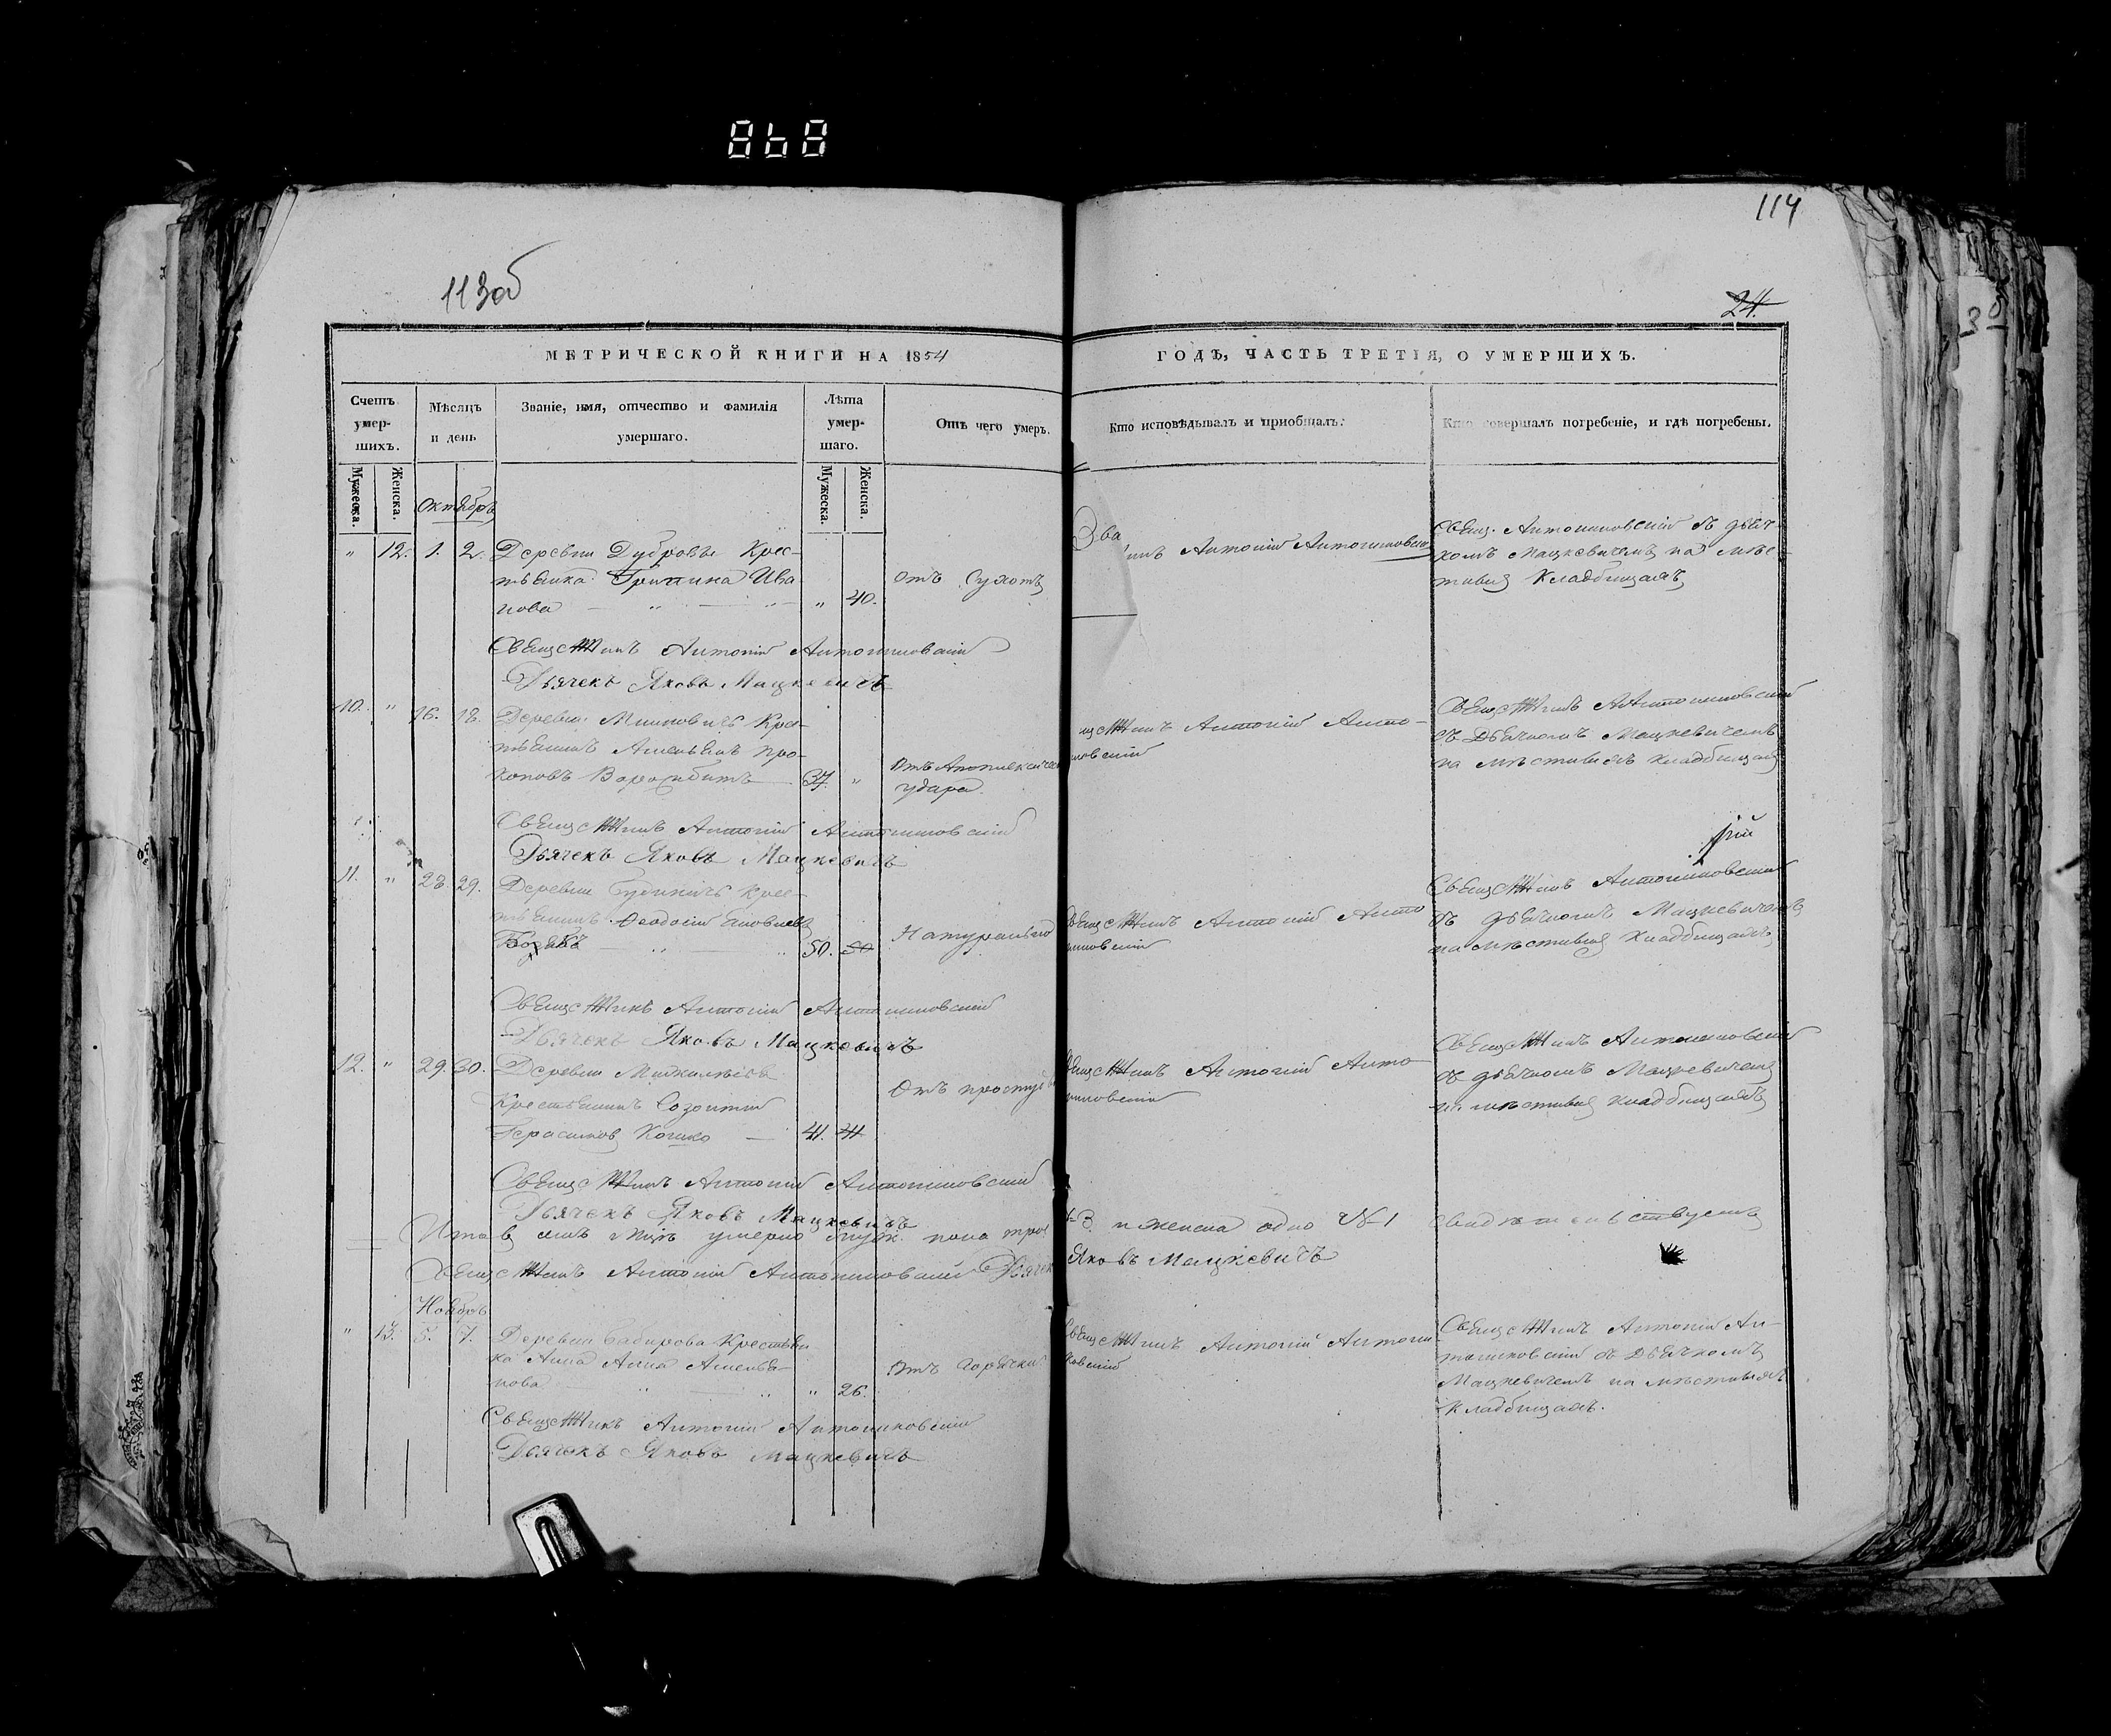 868
114
113об
24.
МЕТРИЧЕСКОЙ КНИГИ НА 1854
ГОДЪ, ЧАСТЬ ТРЕТІЯ, О УМЕРШИХЪ.
Счетъ умер-шихъ.
Мѣсяцъ и день
Званіе, имя, отчество и фамилія
умершаго.
Лѣта умер-шаго.
Отъ чего умеръ.
Кто исповѣдывалъ и пріобщалъ.
Кто совершалъ погребеніе, и гдѣ погребены.
Мужеска.
Женска.
Мужеска.
Женска.
Октябрь
" 12. 1. 2. Деревни Дубровы Крес-
тьянка Грипина Ива
нова " " " 40.
отъ Сухотъ
Антоній Антониновскій
Свящ. Антониновскій съ дьяч-
комъ Мацкевичемъ на мѣс-
тныхъ Кладбищахъ
Священникъ Антоній Антониновскій
Дьячекъ Яковъ Мацкевичъ
10. " 16. 18. Деревни Крес-
тьянинъ Амельянъ Про-
коповъ 37. "
Отъ Апоплексичес
удара.
Антоній Анто-
новскій
Священникъ Антониновскій
съ Дьячкомъ Мацкевичемъ
на мѣстныхъ кладбищахъ
Священникъ Антоній Антониновскій
Дьячекъ Яковъ Мацкевичъ
11. " 28. 29. Деревни Крес-
тьянинъ Ѳеодосій Яковлевъ
" " 50. 50
Натурально
Священникъ Антоній Анто
ниновскій
скій
Священникъ Антониновскій
съ дьячкомъ Мацкевичемъ
на мѣстныхъ Кладбищахъ
Священникъ Антоній Антониновскій
Дьячекъ Яковъ Мацкевичъ
12. " 29. 30. Деревни
Крестьянинъ Созонтій
Герасимовъ 41. 41
Отъ простуды
Священникъ Антоній Анто
ниновскій
Священникъ Антониновскій
съ дьячкомъ Мацкевичемъ
на мѣстныхъ кладбищахъ
Священникъ Антоній Антониновскій
Дьячекъ Яковъ Мацкевичъ
Итого въ семъ м-цѣ умерло муж. пола три №3 и женска одно №1 свидѣтельствуемъ
Священникъ Антоній Антониновскій Дьячекъ Яковъ Мацкевичъ
Ноябрь
" 13. 5. 7. Деревни Крестьян
ка Анна Анна Амелья-
нова " " " 26.
Отъ горячки
Священникъ Антоній Антони
новскій
Священникъ Антоній Ан-
тониновскій съ Дьячкомъ
Мацкевичемъ на мѣстныхъ
Кладбищахъ.
Священникъ Антоній Антониновскій
Дьячекъ Яковъ Мацкевичъ